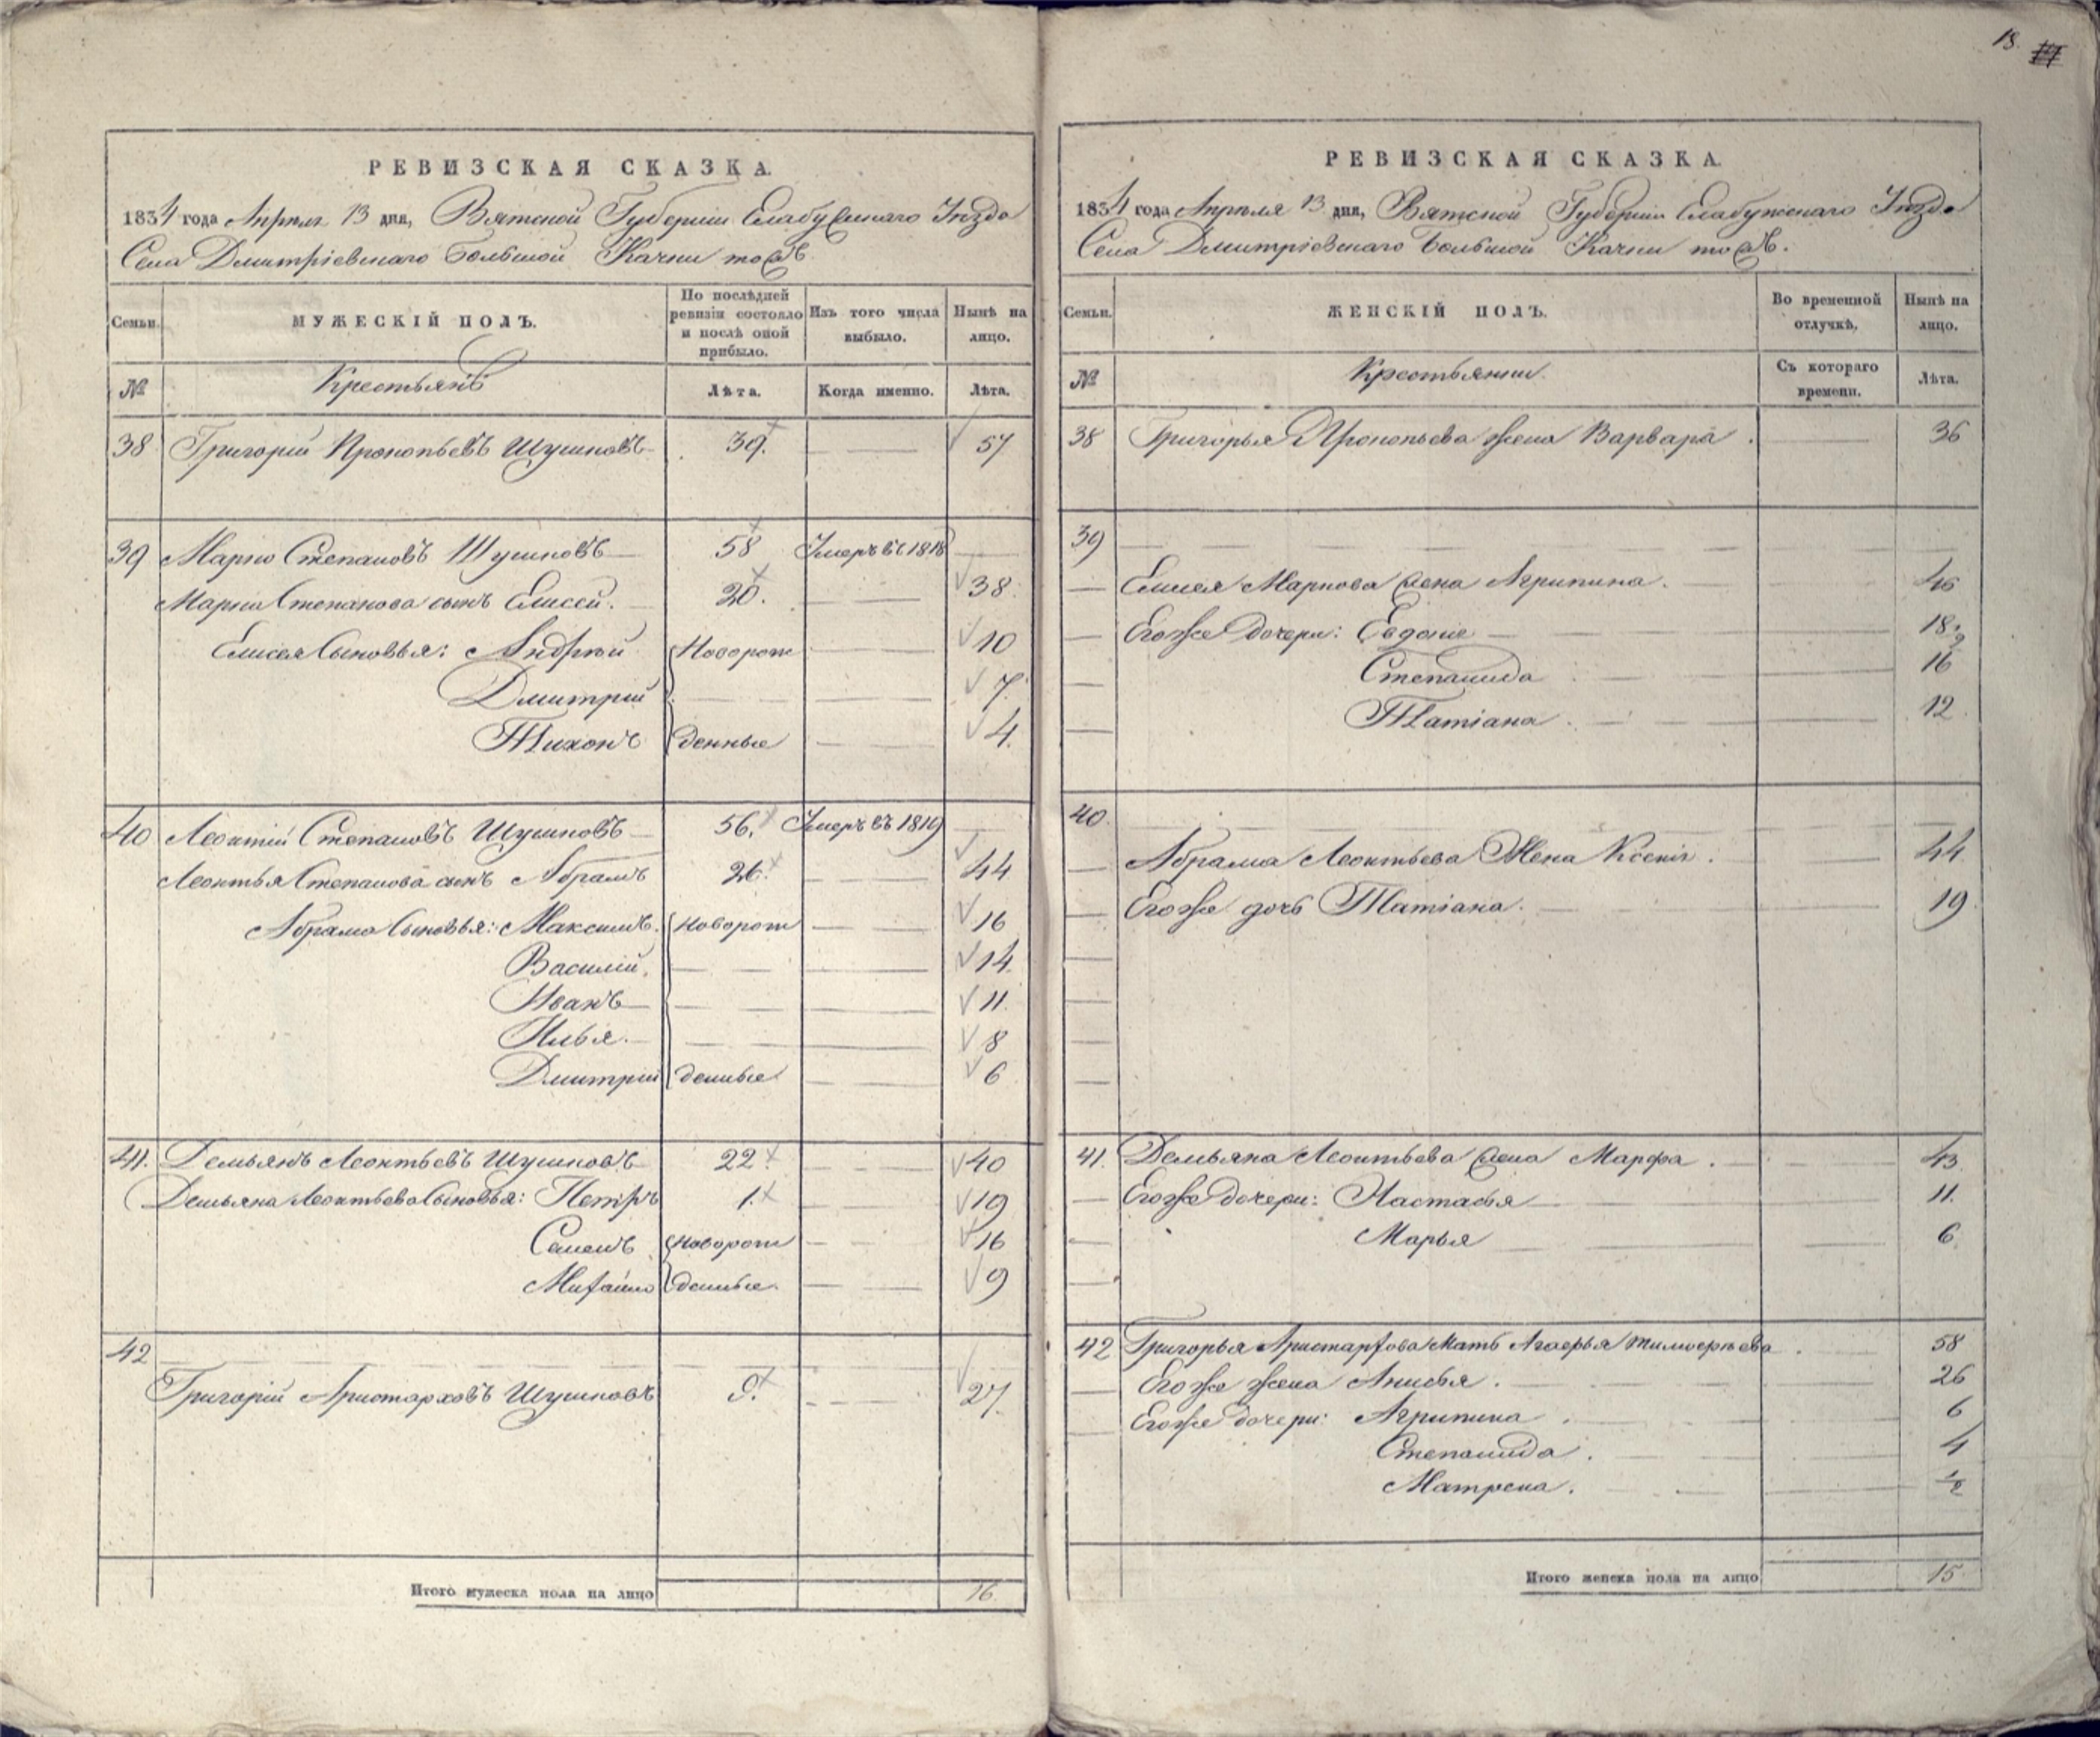 18.
РЕВИЗСКАЯ СКАЗКА.
1834 года Апреля 13 дня, Вятской Губернии Елабужскаго Уезда
Села Дмитріевскаго Большой Качки тожъ.
Семьи.
МУЖЕСКІЙ ПОЛЪ.
По послѣдней ревизіи состояло и послѣ оной прибыло.
Изъ того числа выбыло.
Нынѣ на лицо.
№
Крестьянъ
Лѣта.
Когда именно.
Лѣта.
38 Григорій Прокопьевъ Шушковъ 39. 57
39 Марко Степановъ Шушковъ 58 Умеръ въ 1818
Марка Степанова сынъ Елисей. 20. 38.
Елисея Сыновья: Андрѣй Новорож 10
Дмитрій 7.
Тихонъ денные 4.
40 Леонтій Степановъ Шушковъ 56. Умеръ въ 1819
Леонтья Степанова сынъ Абрамъ 26. 44
Абрама Сыновья: Максимъ. Новорож 16
Василій. 14.
Иванъ 11.
Илья. 8
Дмитрій денные 6
41. Демьянъ Леонтьевъ Шушковъ 22. 40
Демьяна Леонтьева Сыновья: Петръ 1. 19
Семенъ Новорож 16
Михайло денные. 9
42
Григорій Аристарховъ Шушковъ 9. 27.
Итого мужеска пола на лицо 16
РЕВИЗСКАЯ СКАЗКА.
1834 года Апреля 13 дня, Вятской Губерніи Елабужскаго Уезда
Села Дмитріевскаго Большой Качки тожъ.
Семьи.
ЖЕНСКІЙ ПОЛЪ.
Во временной отлучкѣ.
Нынѣ на лицо.
№
Крестьянки.
Съ котораго времени.
Лѣта.
38 Григорья Прокопьева жена Варвара. 36
39
Елисея Маркова жена Агрипина. 46
Егоже дочери: Евдокія 18.
Степанида 16
Татіана. 12
40.
Абрама Леонтьева Жена Ксенія. 44
Егоже дочь Татіана. 19
41. Демьяна Леонтьева жена Марфа. 43
Егоже дочери: Настасья 11.
Марья 6.
42 Григорья Аристархова Мать Агафья Тимофѣева. 58
Егоже жена Анисья. 26
Егоже дочери: Агрипина. 6
Степанида. 4
Матрена. ½
Итого женска пола на лицо 15